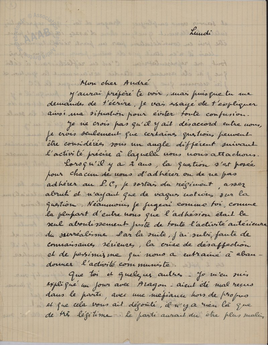 Lundi
Mon cher André
J'aurai préféré te voir, mais puisque tu me
demande de t'écrire, je vais essayer de t'expliquer
ainsi ma situation pour éviter toute confusion.
Je ne crois pas qu'il y ait désaccord entre nous,
je crois seulement que certaines questions peuvent
être considérées sous un angle différent suivant
l'activité précise à laquelle nous nous attachons.
Lorsqu'il y a 2 ans, la question s'est posée
pour chacun de nous d'adhérer ou de ne pas
adhérer au P.C., je sortais du régiment, assez
abruti et n'ayant que de vagues notions sur la
question. Néanmoins je jugeai comme toi, comme
la plupart d'entre nous que l'adhésion était le
seul aboutissement juste de toute l'activité antérieure
du surréalisme. Par la suite, j'ai subi, faute de
connaissances sérieuses, la crise de désaffection
et de pessimisme qui nous a entrainé à aban-
donner l'activité communiste.
Que toi et quelques autres - Je m'en suis
expliqué un jour avec Aragon - aient été mal reçus
dans le parti, avec une méfiance hors de propos et
que cela vous ait dégoûté, il n'y a rien là que
de légitime. le parti aurait dû être plus